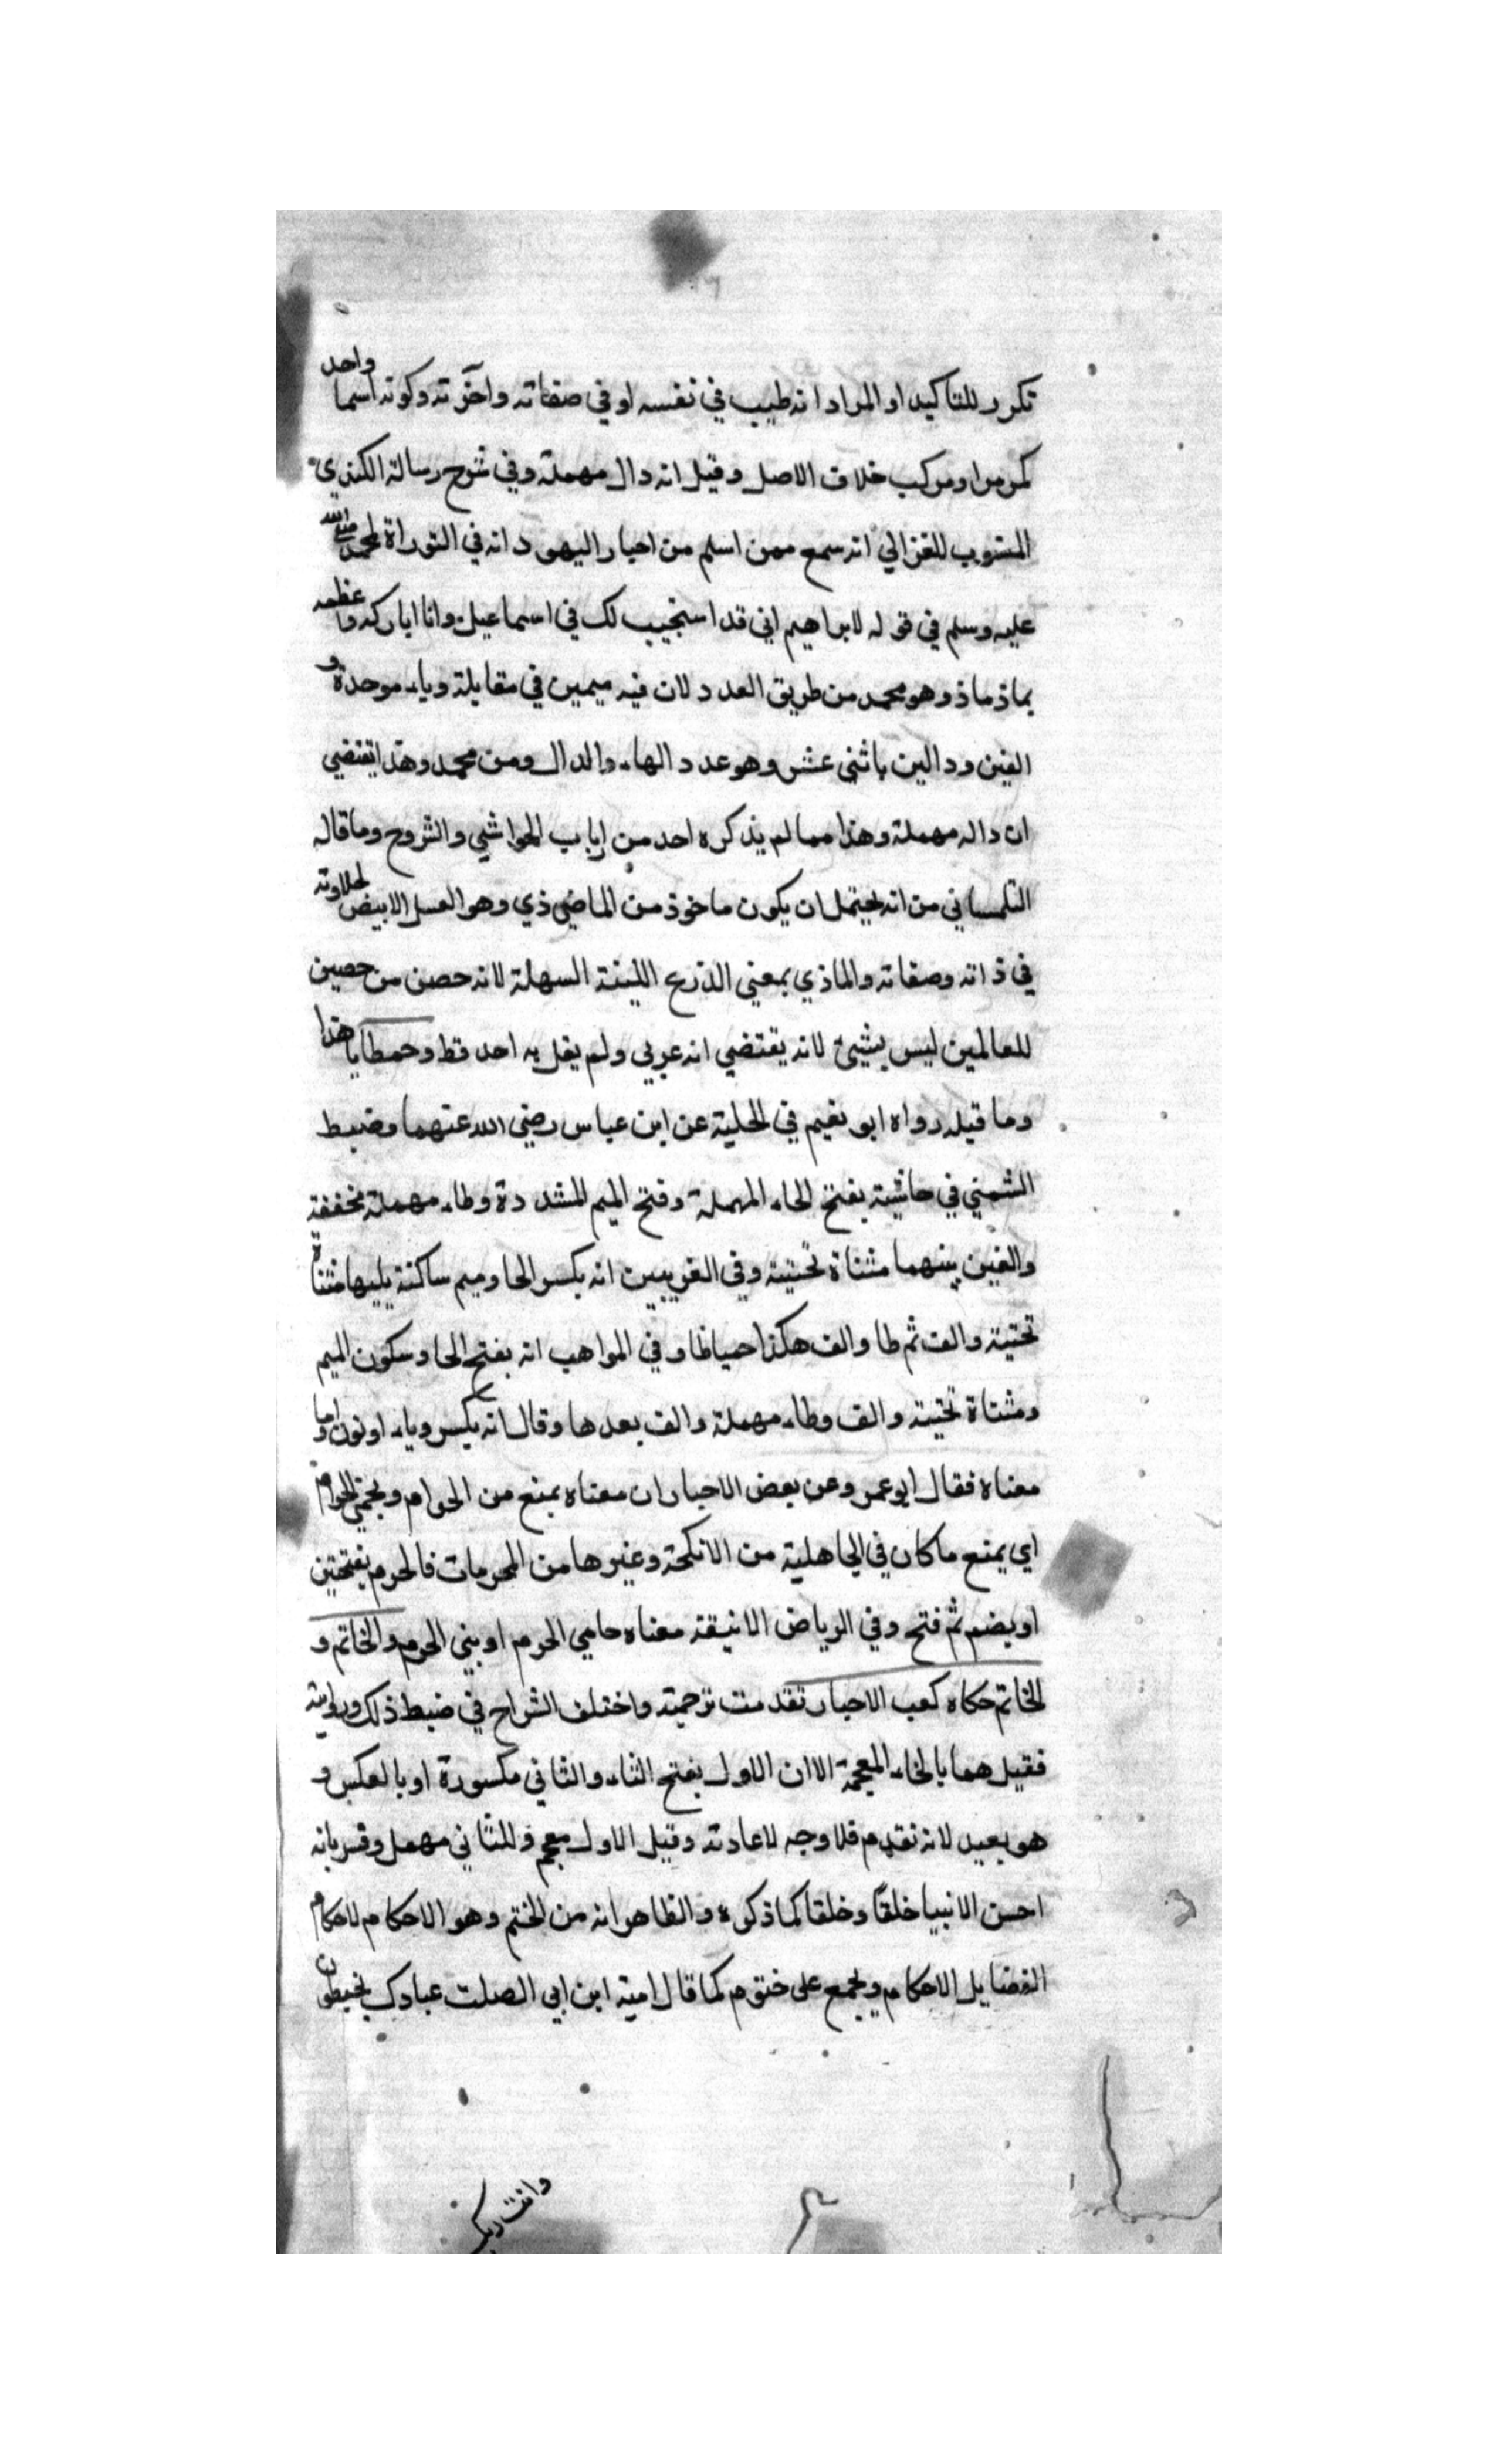 تكرر للتاكيد او المراد انه طيب في نفسه او في صفاته واخرته وكونه اسما واحد
كمرمر او مركب خلاف الاصل وقيل انه دال مهملة وفي شرح رسالة الكندي
المنسوب للغزالي انه سمع ممن اسلم من احبار اليهود انه في التوراة لمحمد صلى الله
عليه وسلم في قوله لابراهيم اني قد استجيب لك في اسماعيل وانا اباركه واعظمه
بماذ ماذ وهو محمد من طريق العدد لان فيه ميمين في مقابلة وباء موحدة و
الفين ودالين باثني عشر وهو عدد الهاء والدال ومن محمد وهذا يقتضي
ان داله مهملة وهذا مما لم يذكره احد من ارباب الحواشي والشروح وما قاله
التلمساني من انه يحتمل ان يكون ماخوذ من الماضي ذي وهو العسل الابيض لحلاوته
في ذاته وصفاته والماذي بمعني الذرع اللينة السهلة لانه حصن من حصين
للعالمين ليس بشيئ لانه يقتضي انه عربي ولم يقل به احد قط وحمطايا هذا
وما قيله رواه ابو نعيم في الحلية عن ابن عباس رضي الله عنهما وضبط
الشمني في حاشيته بفتح الحاء المهملة وفتح الميم المشددة وطاء مهملة مخففة
والفين بينهما مثناة تحتية وفي الغريبين انه بكسر الحا وميم ساكنة يليها مثناة
تحتية والف ثم طا والف هكذا حمياطا وفي المواهب انه بفتح الحا وسكون الميم
ومثناة تحتية والف وطاء مهملة والف بعدها وقال انه بكسر وياء او نون واما
معناه فقال ابو عمر وعن بعض الاحبار ان معناه يمنع من الحرام ويحمي الحرام
اي يمنع ما كان في الجاهلية من الانكحة وغيرها من المحرمات فالحرم بفتحتين
او بضم ثم فتح وفي الرياض الانيقة معناه حامي الحرم او بني الحرم والخاتم و
الخاتم حكاه كعب الاحبار تقدمت ترجمته واختلف الشراح في ضبط ذلك وروايته
فقيل هما بالخاء المعجمة الا ان الاول بفتح التاء والثاني مكسورة او بالعكس و
هو بعيد لانه تقدم فلا وجه لاعادته وقيل الاول معجم والثاني مهمل وفسر بانه
احسن الانبيا خلقا وخلقا كما ذكره والظاهر انه من الختم وهو الاحكام لاحكام
الفضايل الاحكام ويجمع على ختوم كما قال امية ابن ابي الصلت عبادك يخيطون
وانت ربك